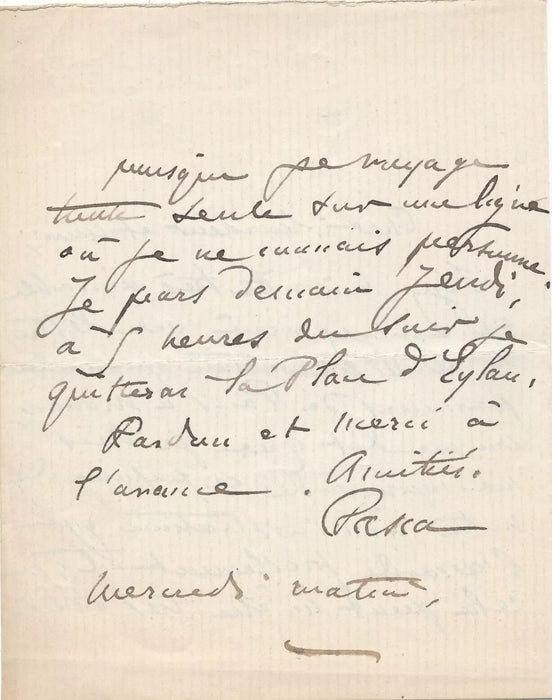 puisque je voyage
toute seule sur une ligne
où je ne connais personne.
Je pars demain Jeudi,
à 5 heures du soir je
quitterai la Place d'Eylau.
Pardon et merci à
l'avance. Amitiés.
Pasca
Mercredi matin,